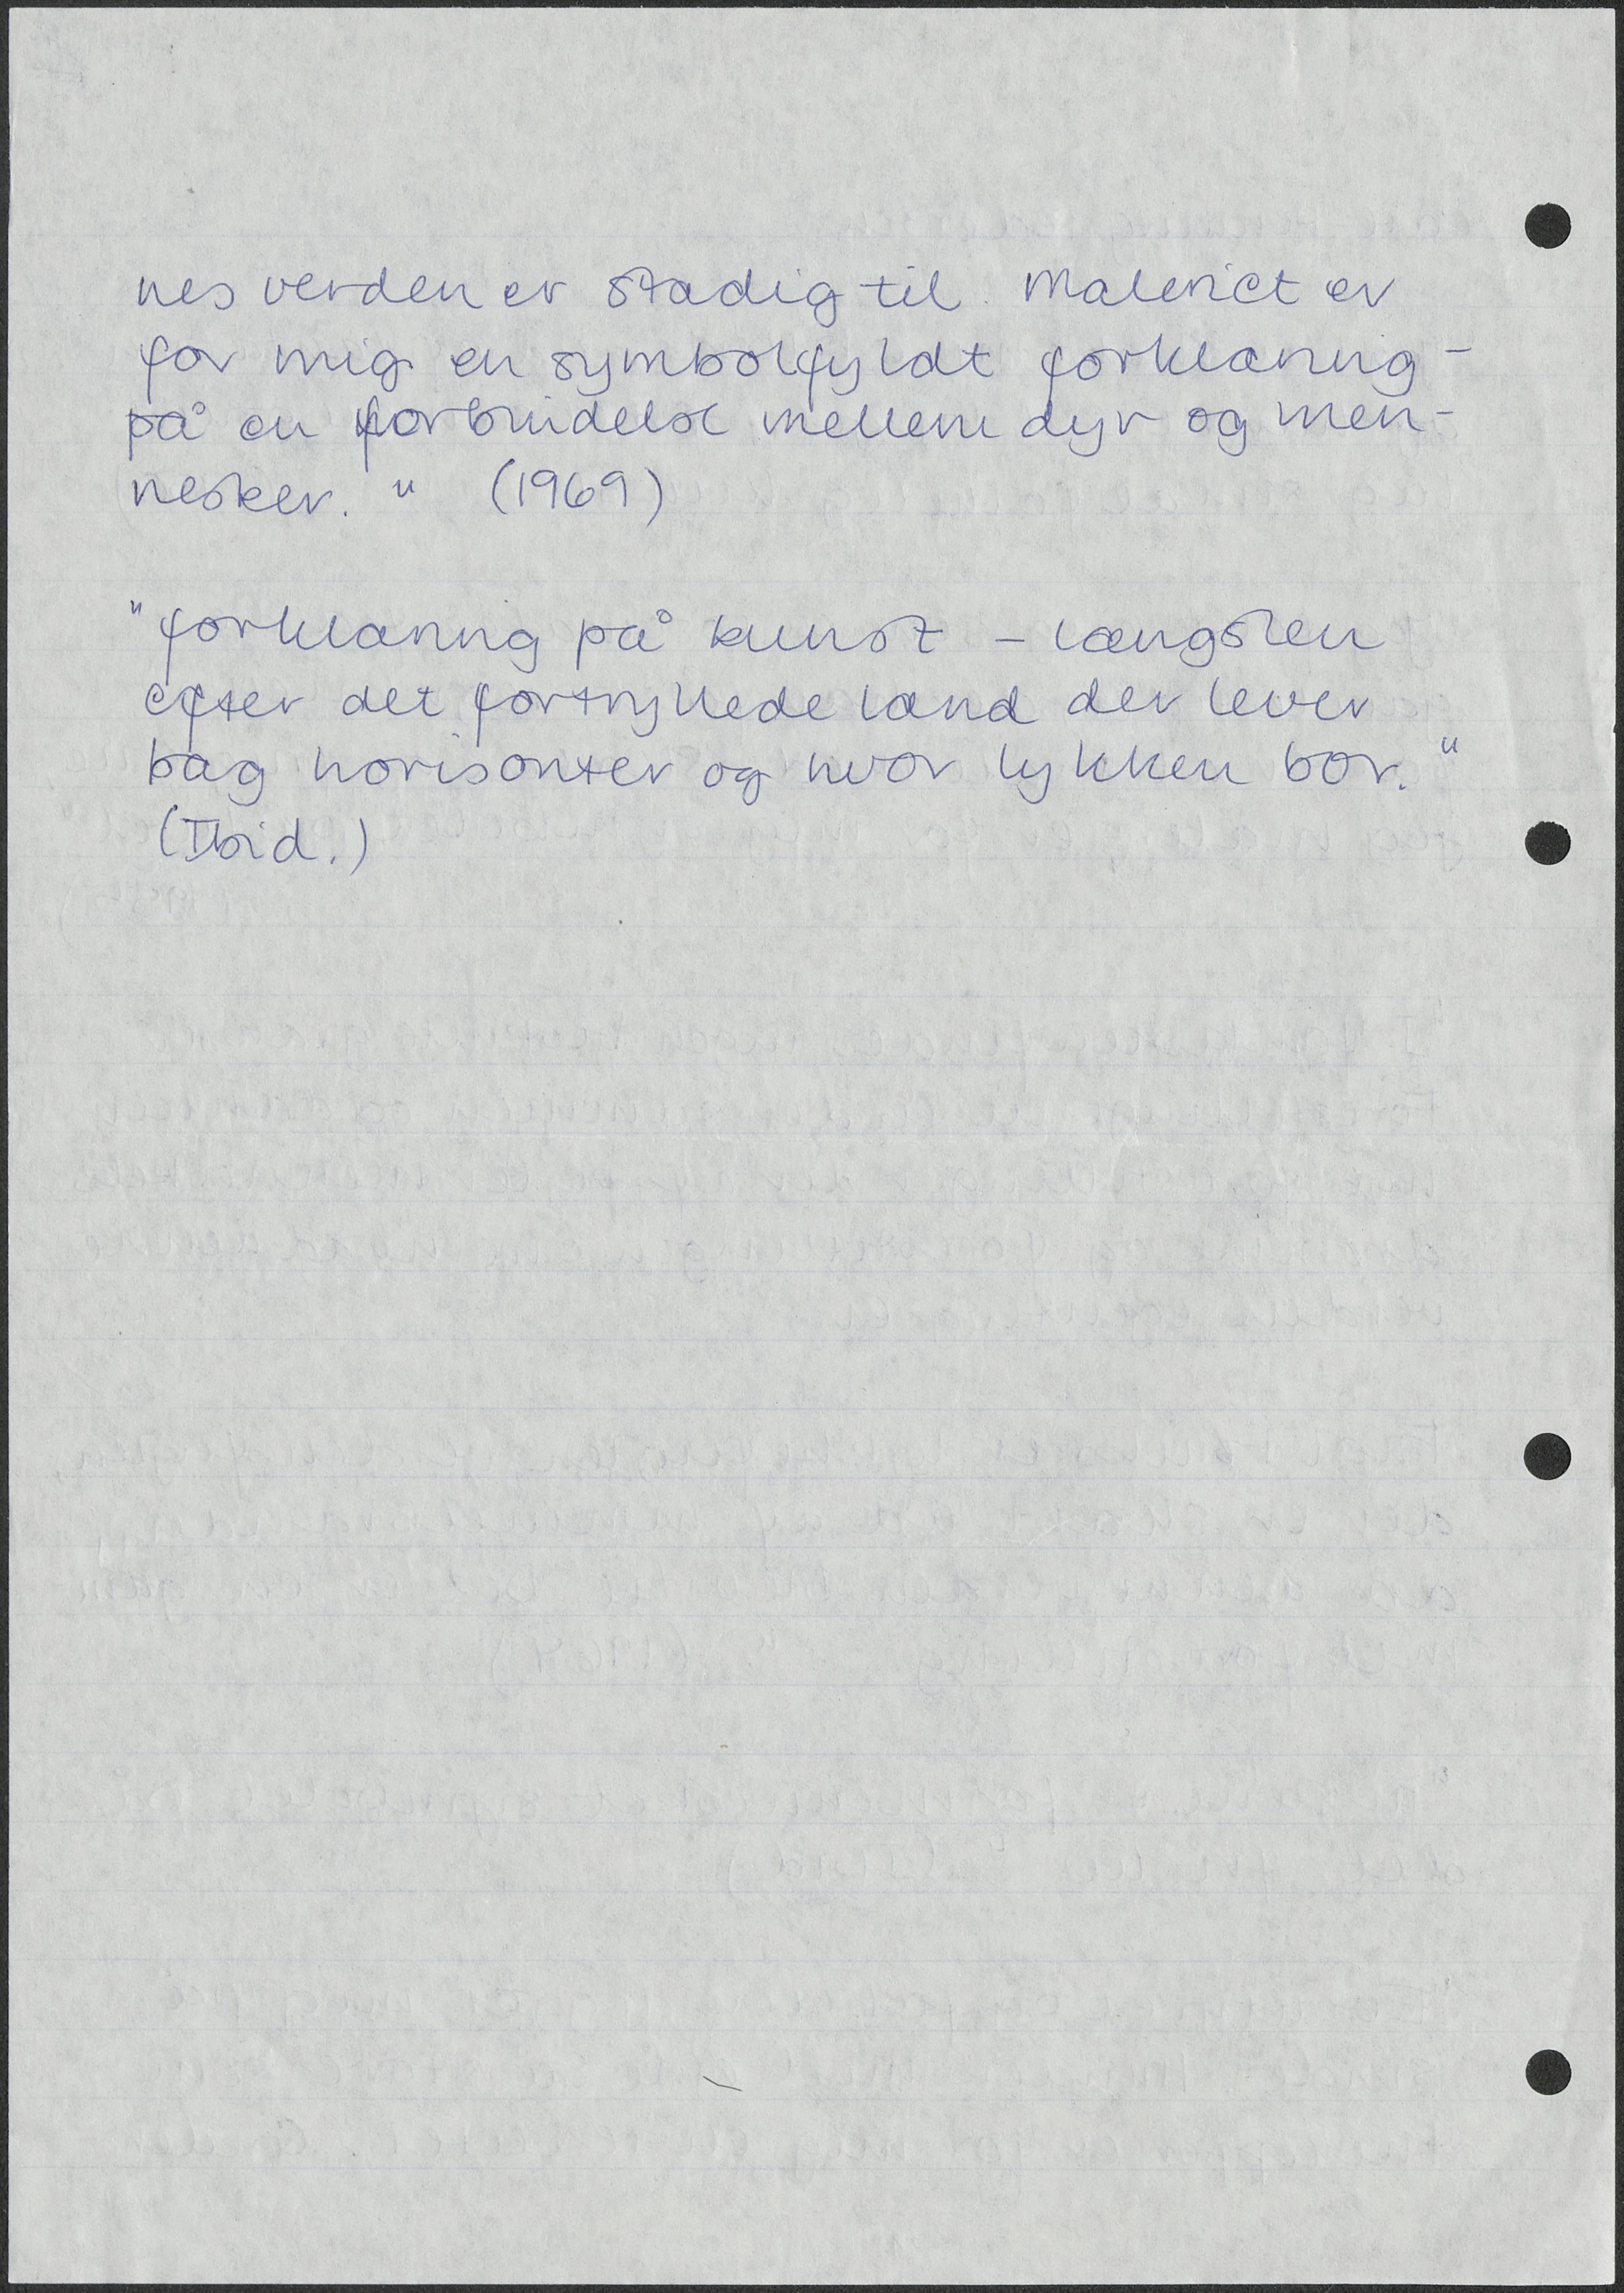 nes verden er stadig til. Maleriet er
for mig en symbolfyldt forklaring -
på en forbindelse mellem dyr og men-
nesker." (1969)
"forklaring på kunst - længslen
efter det fortryllede land der lever
bag horisonter og hvor lykken bor."
(Ibid.)